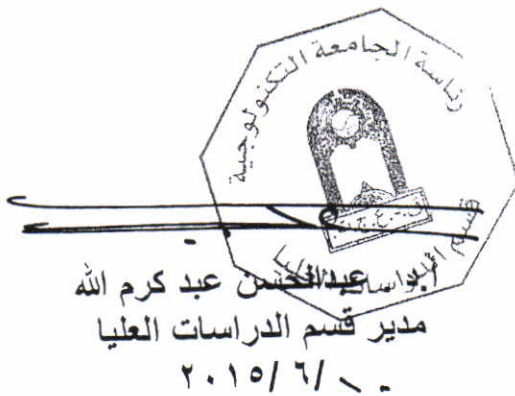 رئاسة الجامعة التكنولوجية
قسم الدراسات العليا
أ.د. عبدالحسن عبد كرم الله
مدير قسم الدراسات العليا
٢٠١٥/٦/